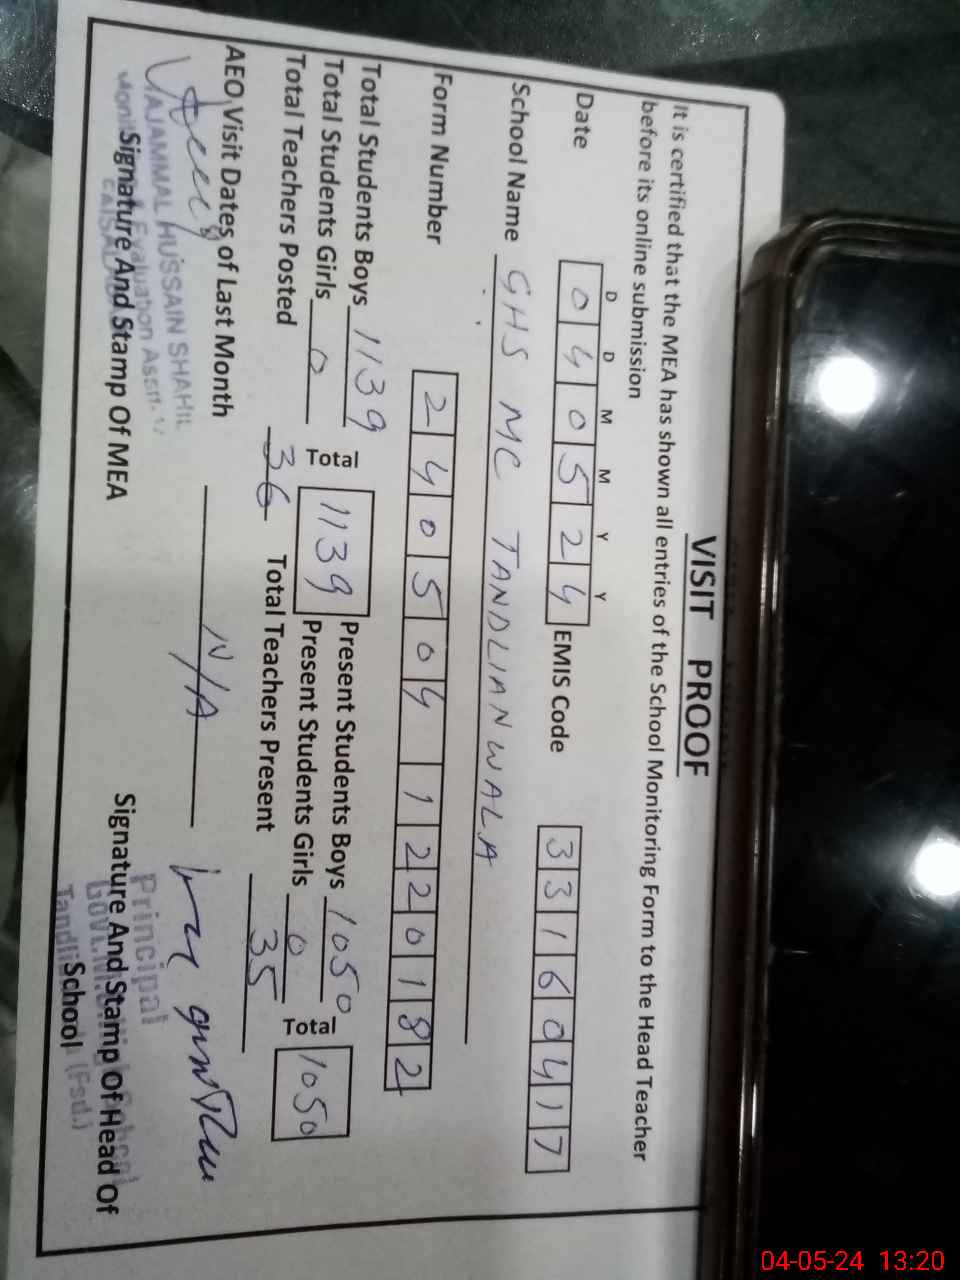 VISIT PROOF
It is certified that the MEA has shown all entries of the School Monitoring Form to the Head Teacher
before its online submission
D D M M Y Y
Date 040524 EMIS Code 33160417
School Name GHS MC TANDLIANWALA
Form Number 2405041220182
Total Students Boys 1139 Total 1139 Present Students Boys 1050 Total 1050
Total Students Girls 0 Present Students Girls 0
Total Teachers Posted 36 Total Teachers Present 35
AEO Visit Dates of Last Month N/A
HUSSAIN SHAHI
Evaluation
Signature And Stamp Of MEA
Principal
Signature And Stamp Of Head Of
School
(Fsd.)
04-05-24 13:20